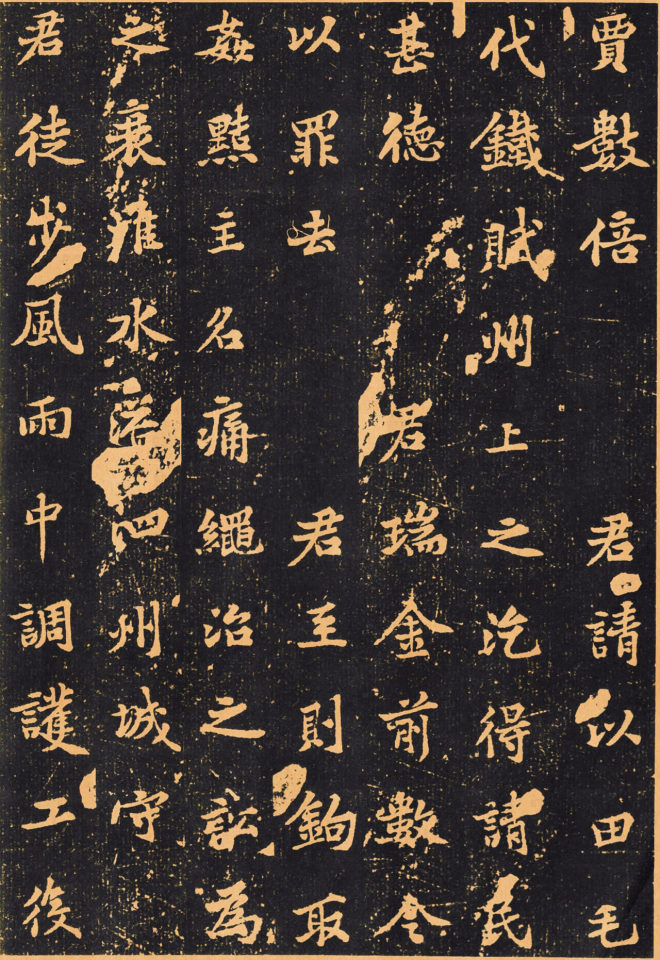 賈數倍 君請以田毛
代鐵賦州上之汔得請民
甚德 君瑞金前數令
以罪去 君至則鉤取
姦黠主名痛繩治之訖為
之衰淮水泗州城守
君徒步風雨中調護工役